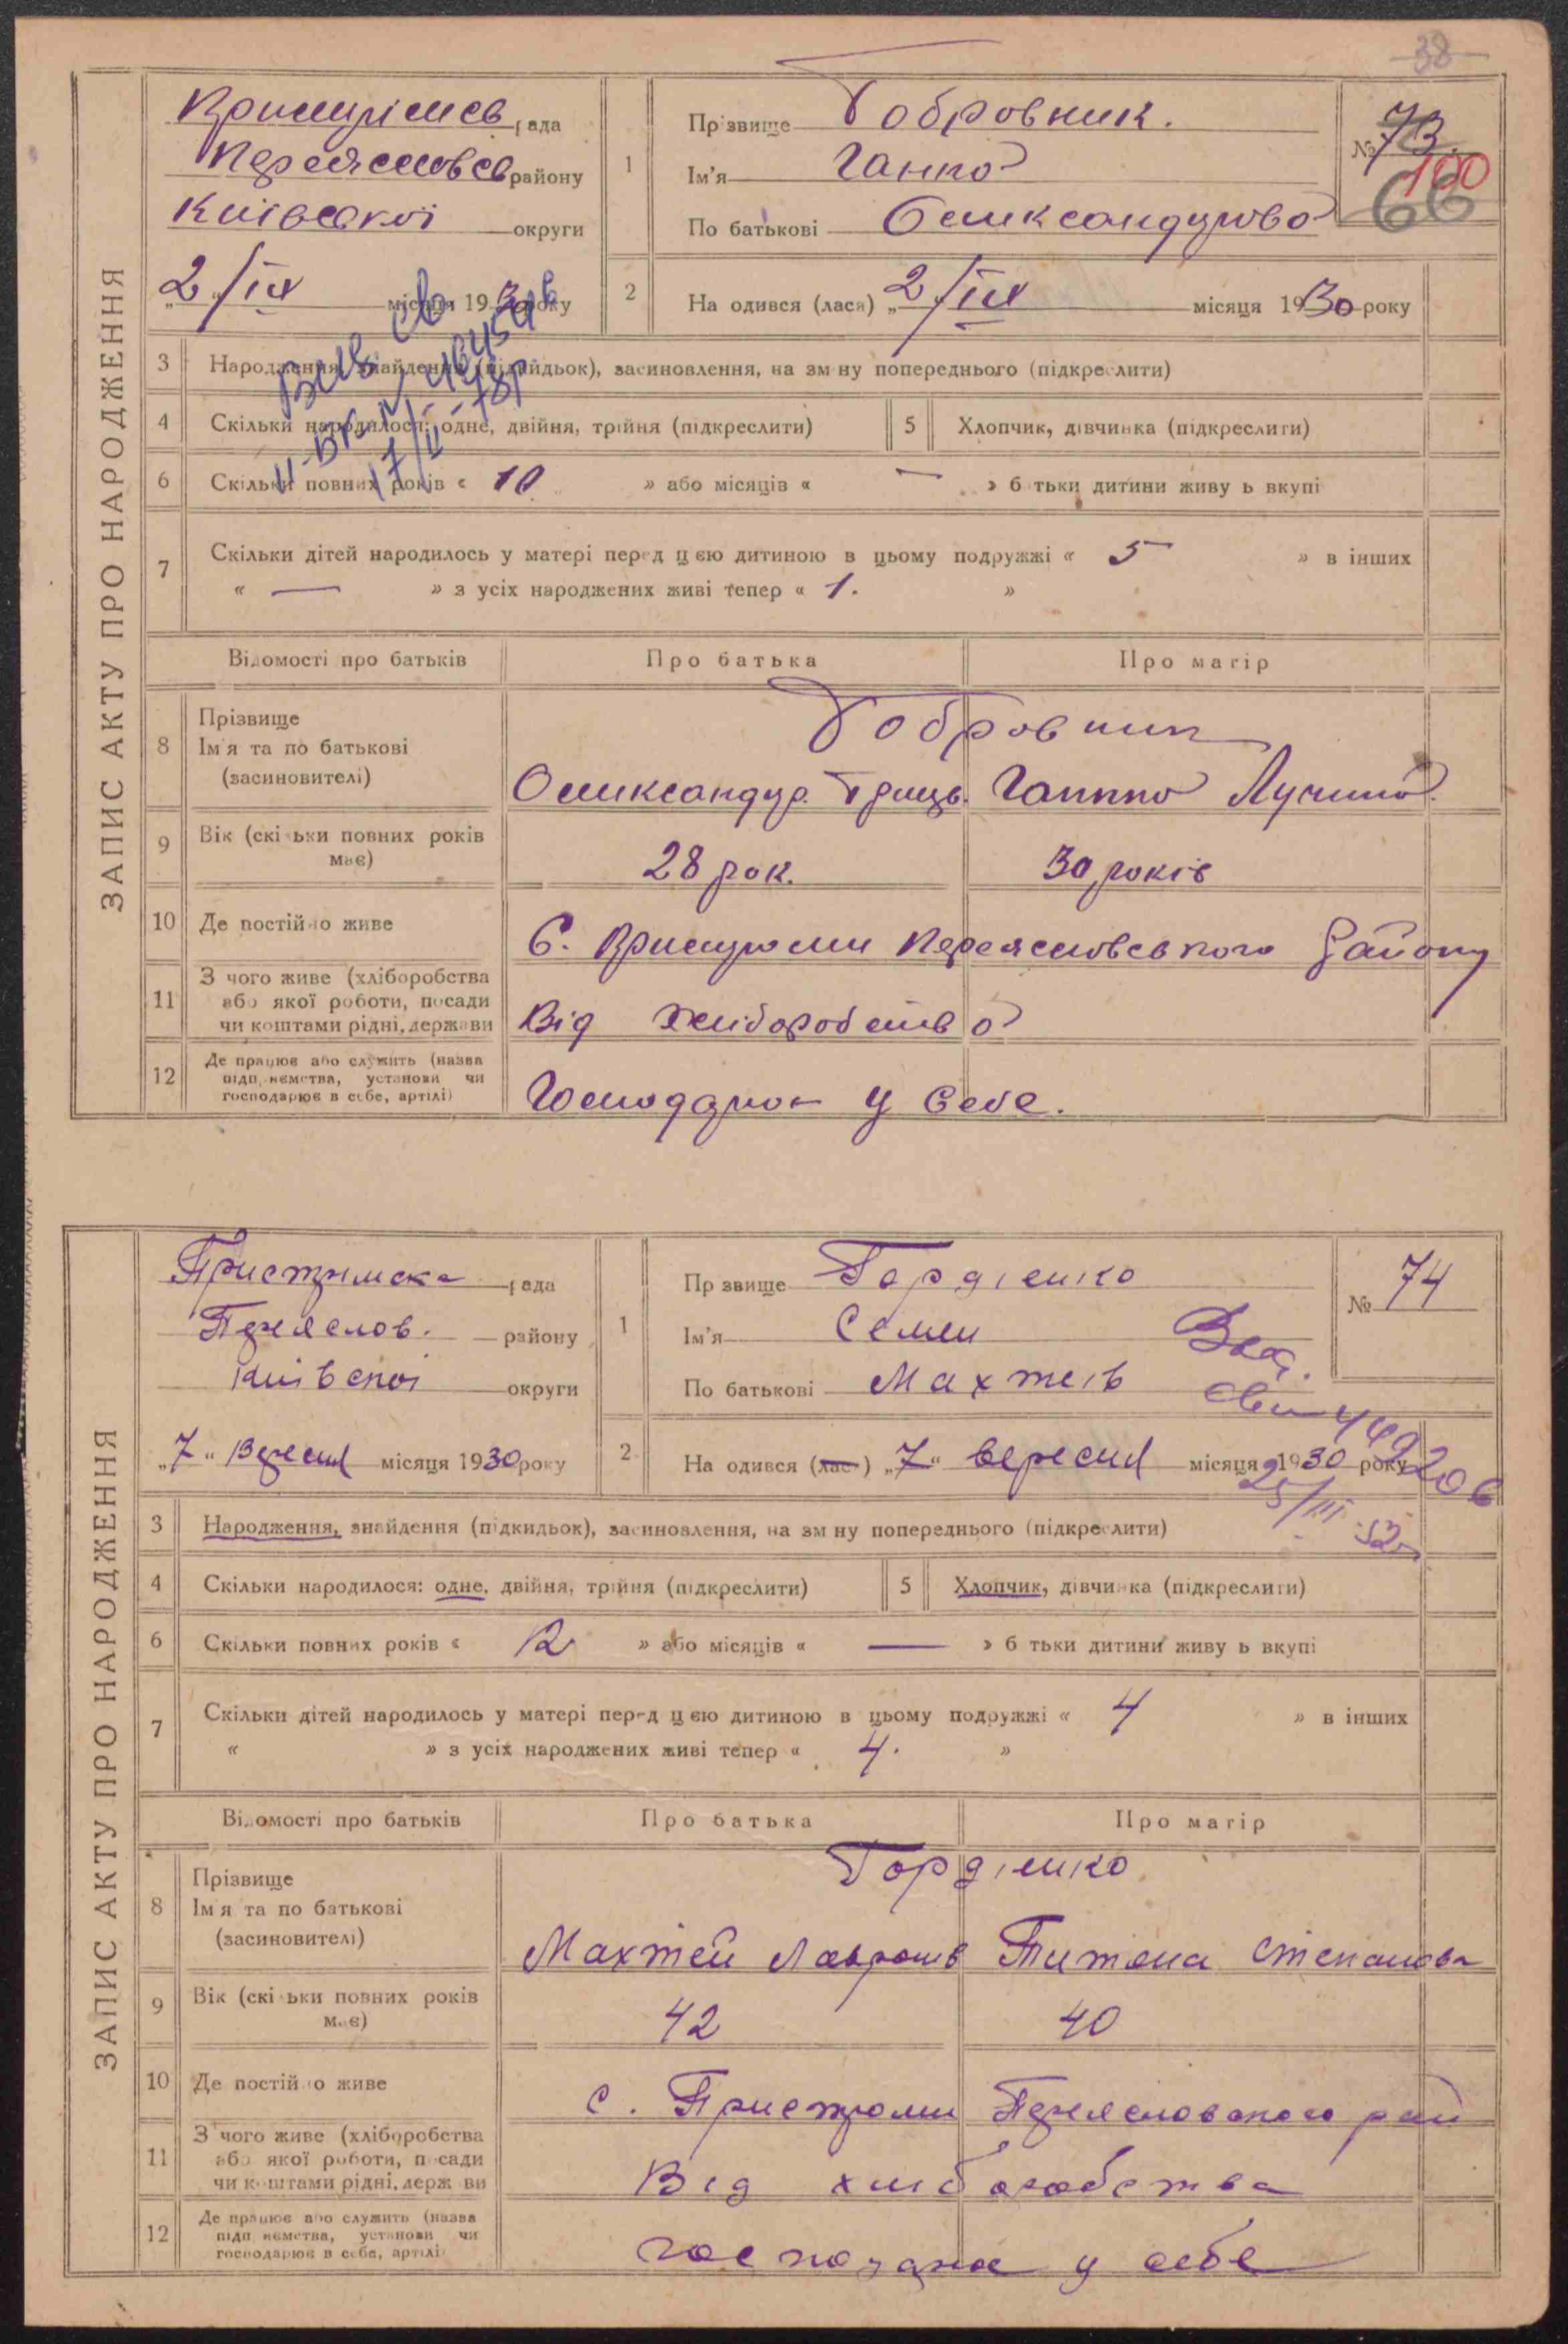 38
ЗАПИС АКТУ ПРО НАРОДЖЕННЯ
рада
району
Київської округи
2/ІХ місяця 1930 року
1
Прізвище Бобровник.
Ім'я Ганна
По батькові Олександрова
№ 73.
100
66
2
На одився (лася) „2/ІХ місяця 1930 року
3 Народження, знайдення (підкидьок), засиновлення, на зм ну попереднього (підкреслити)
4 Скільки народилося: одне, двійня, трійня (підкреслити)
5 Хлопчик, дівчинка (підкреслити)
6 Скільки повних років « 10 » або місяців « — » б тьки дитини живу ь вкупі
7 Скільки дітей народилось у матері перед цією дитиною в цьому подружжі « 5 » в інших
« — » з усіх народжених живі тепер « 1. »
Відомості про батьків
Про батька
Про матір
8 Прізвище
Ім'я та по батькові
(засиновителі)
Бобровник
Олександр. Гриць. Ганна
9 Вік (скі ьки повних років має)
28 рок.
30 років
10 Де постійно живе
с. Переясловського Району
11 З чого живе (хліборобства або якої роботи, посади чи коштами рідні, держави
Від хліборобства
12 Де працює або служить (назва підп, иємства, установи чи господарює в себе, артілі)
у себе.
ЗАПИС АКТУ ПРО НАРОДЖЕННЯ
Пристромска рада
Переяслов. району
Київської округи
„7" Вересня місяця 1930 року
1
Пр звище Гордіенко
Ім'я Семен
По батькові Махтеів
№ 74
2
На одився (лас ) „7" вересня місяця 1930 року
25/III 52
3 Народження, знайдення (підкидьок), засиновлення, на зм ну попереднього (підкреслити)
4 Скільки народилося: одне, двійня, трійня (підкреслити)
5 Хлопчик, дівчинка (підкреслити)
6 Скільки повних років « 12 » або місяців « — » б тьки дитини живу ь вкупі
7 Скільки дітей народилось у матері перед цією дитиною в цьому подружжі « 4 » в інших
« » з усіх народжених живі тепер « 4. »
Відомості про батьків
Про батька
Про матір
8 Прізвище
Ім'я та по батькові
(засиновителі)
Гордіенко
Махтей Лавронів Титяна Степанова
9 Вік (скі ьки повних років має)
42
40
10 Де постійно живе
с. Пристроми Переясловского рай
11 З чого живе (хліборобства або якої роботи, посади чи коштами рідні, держ ви
Від хліборобства
12 Де працює або служить (назва підп иємства, установи чи господарює в себе, артілі)
у себе